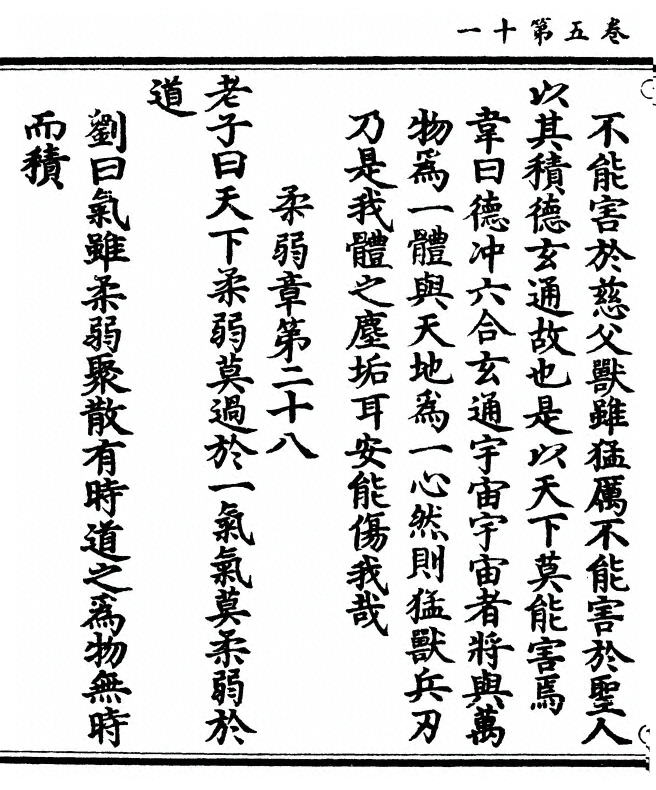 卷五第十一
不能害於慈父獸雖猛厲不能害於聖人
以其積德玄通故也是以天下莫能害焉
韋曰德冲六合玄通宇宙宇宙者將與萬
物爲一體與天地爲一心然則猛獸兵刃
乃是我體之塵垢耳安能傷我哉
柔弱章第二十八
老子曰天下柔弱莫過於一氣氣莫柔弱於
道
劉曰氣雖柔弱聚散有時道之爲物無時
而積